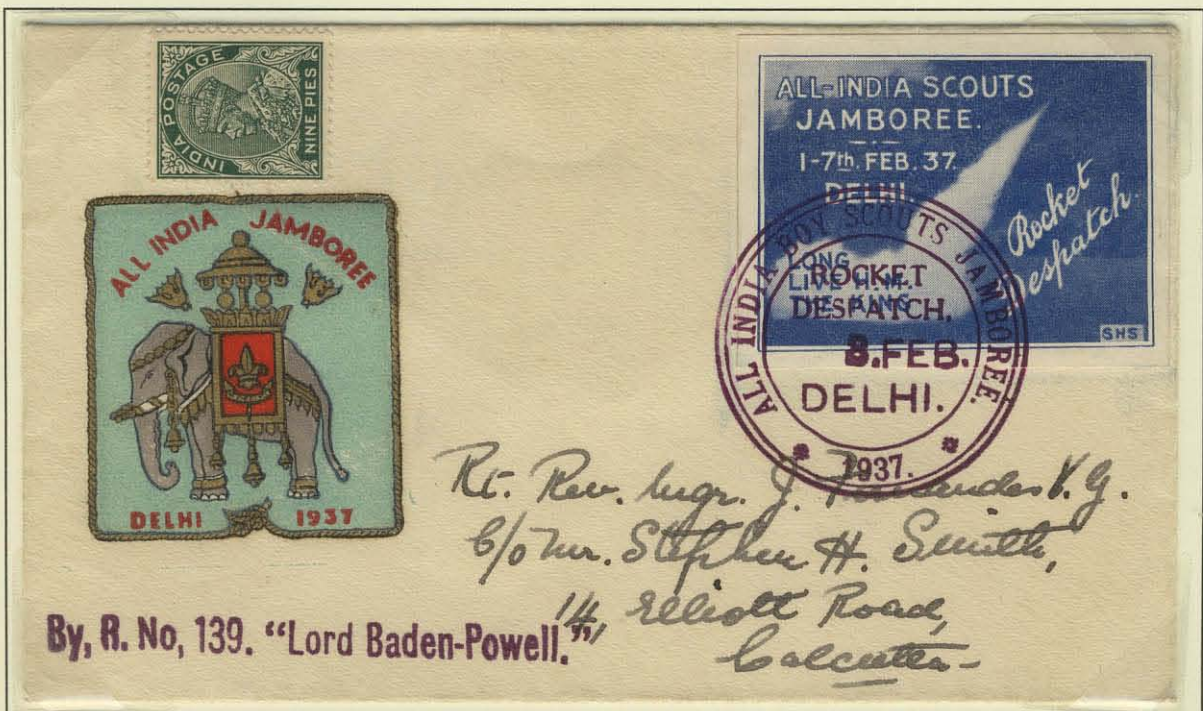 INDIA POSTAGE
NINE PIES
ALL INDIA JAMBOREE
DELHI 1937
ALL-INDIA SCOUTS
JAMBOREE.
1-7th. FEB. 37.
DELHI.
Rocket
Despatch.
LONG
LIVE H.M.
THE KING
SHS
ALL INDIA BOY SCOUTS JAMBOREE.
ROCKET
DESPATCH,
8.FEB.
DELHI.
* 1937. *
Rt. Rev. Mgr. J. Fernandes V.G.
C/o Mr. Stephen H. Smith,
14, Elliott Road,
Calcutta-
By, R. No, 139. "Lord Baden-Powell."